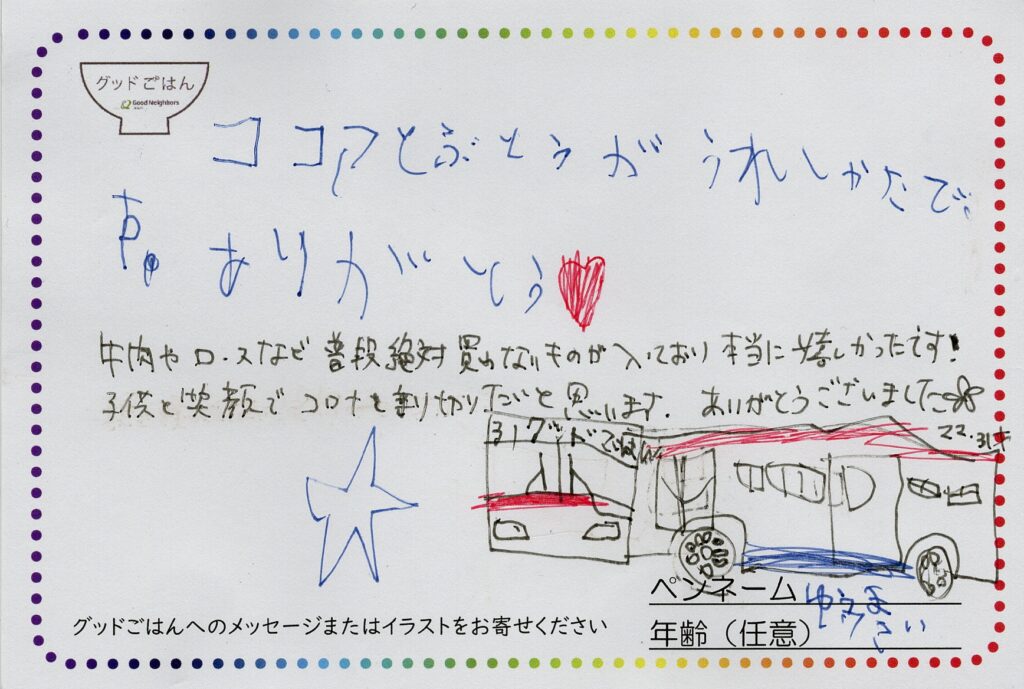 グッドごはん
Good Neighbors
ココアとぶとうがうれしかたです。
ありがとう
牛肉やロースなど普段絶対買わないものが入っており本当に嬉しかったです!
子供と笑顔でコロナを乗り切りたいと思います. ありがとうございました
31グッドごはん
22.31
ペンネーム
グッドごはんへのメッセージまたはイラストをお寄せください
年齢(任意)
さい